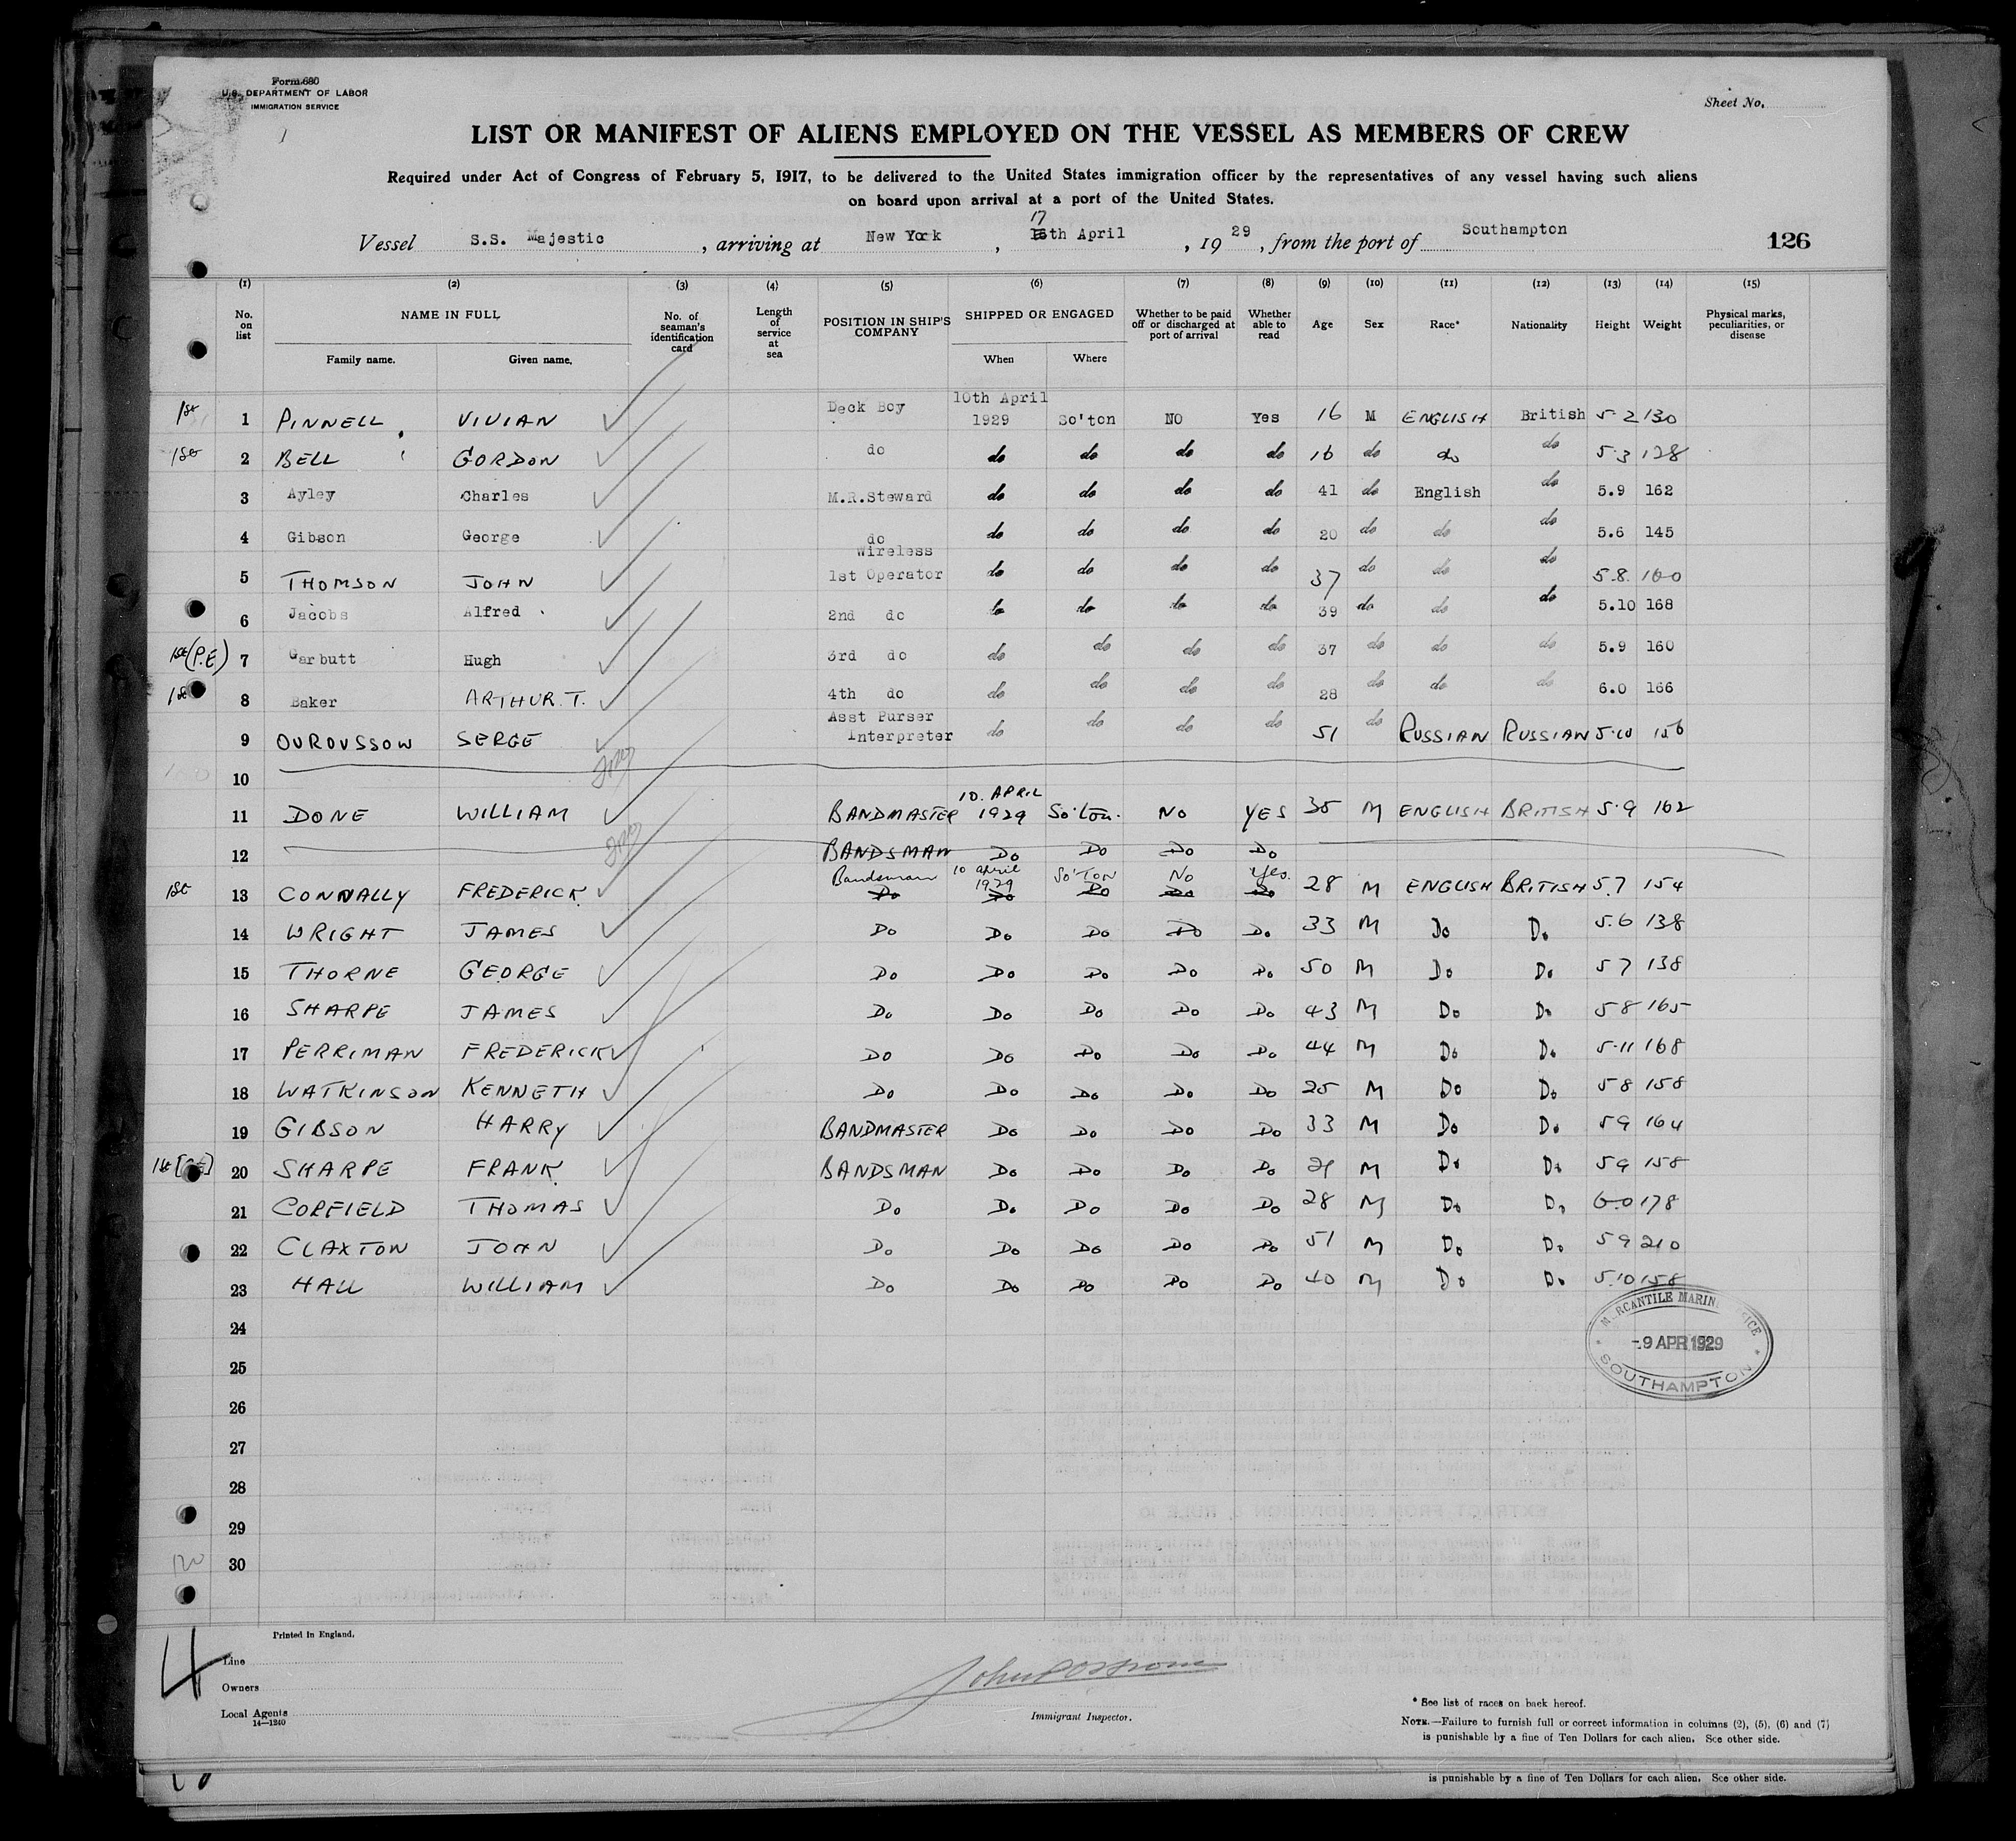 Form 680
U.S. DEPARTMENT OF LABOR
IMMIGRATION SERVICE
Sheet No.
LIST OR MANIFEST OF ALIENS EMPLOYED ON THE VESSEL AS MEMBERS OF CREW
Required under Act of Congress of February 5, 1917, to be delivered to the United States immigration officer by the representatives of any vessel having such aliens
on board upon arrival at a port of the United States.
17
Vessel S.S. Majestic, arriving at New York, th April, 1929, from the port of Southampton 126
(1) (2) (3) (4) (5) (6) (7) (8) (9) (10) (11) (12) (13) (14) (15)
No. on list NAME IN FULL Family name. Given name. No. of seaman's identification card Length of service at sea POSITION IN SHIP'S COMPANY SHIPPED OR ENGAGED When Where Whether to be paid off or discharged at port of arrival Whether able to read Age Sex Race* Nationality Height Weight Physical marks, peculiarities, or disease
1st 1 PINNELL VIVIAN Deck Boy 10th April 1929 So'ton NO Yes 16 M ENGLISH British 5 2 130
1st 2 BELL GORDON do do do do do 16 do do do 5.3 128
3 Ayley Charles M.R.Steward do do do do 41 do English do 5.9 162
4 Gibson George do do do do do 20 do do do 5.6 145
5 THOMSON JOHN Wireless 1st Operator do do do do 37 do do do 5.8. 160
6 Jacobs Alfred 2nd do do do do do 39 do do do 5.10 168
1st (P.E) 7 Garbutt Hugh 3rd do do do do do 37 do do do 5.9 160
1st 8 Baker ARTHUR.T. 4th do do do do do 28 do do do 6.0 166
9 OUROUSSOW SERGE Asst Purser Interpreter do do do do 51 do RUSSIAN RUSSIAN 5.10 156
10
11 DONE WILLIAM BANDMASTER 10. APRIL 1929 So'ton. NO YES 35 M ENGLISH BRITISH 5.9 162
12 BANDSMAN Do Do Do Do
1st 13 CONNALLY FREDERICK Bandsman Do 10 April 1929 Do So'TON Do No Do Yes. Do 28 M ENGLISH BRITISH 5.7 154
14 WRIGHT JAMES Do Do Do Do Do 33 M Do Do 5.6 138
15 THORNE GEORGE Do Do Do Do Do 50 M Do Do 5 7 138
16 SHARPE JAMES Do Do Do Do Do 43 M Do Do 5 8 165
17 PERRIMAN FREDERICK Do Do Do Do Do 44 M Do Do 5.11 168
18 WATKINSON KENNETH Do Do Do Do Do 25 M Do Do 5 8 158
19 GIBSON HARRY BANDMASTER Do Do Do Do 33 M Do Do 5 9 164
1st 20 SHARPE FRANK BANDSMAN Do Do Do Do M Do Do 5 9 158
21 CORFIELD THOMAS Do Do Do Do Do 28 M Do Do 6.0 178
22 CLAXTON JOHN Do Do Do Do Do 51 M Do Do 5 9 210
23 HALL WILLIAM Do Do Do Do Do 40 M Do Do 5.10 158
24
MERCANTILE MARINE OFFICE
-9 APR 1929
SOUTHAMPTON
25
26
27
28
29
30
120
Printed in England.
4
Line
Owners
Local Agents
14—1240
Immigrant Inspector.
* See list of races on back hereof.
NOTE.—Failure to furnish full or correct information in columns (2), (5), (6) and (7)
is punishable by a fine of Ten Dollars for each alien. See other side.
is punishable by a fine of Ten Dollars for each alien. See other side.